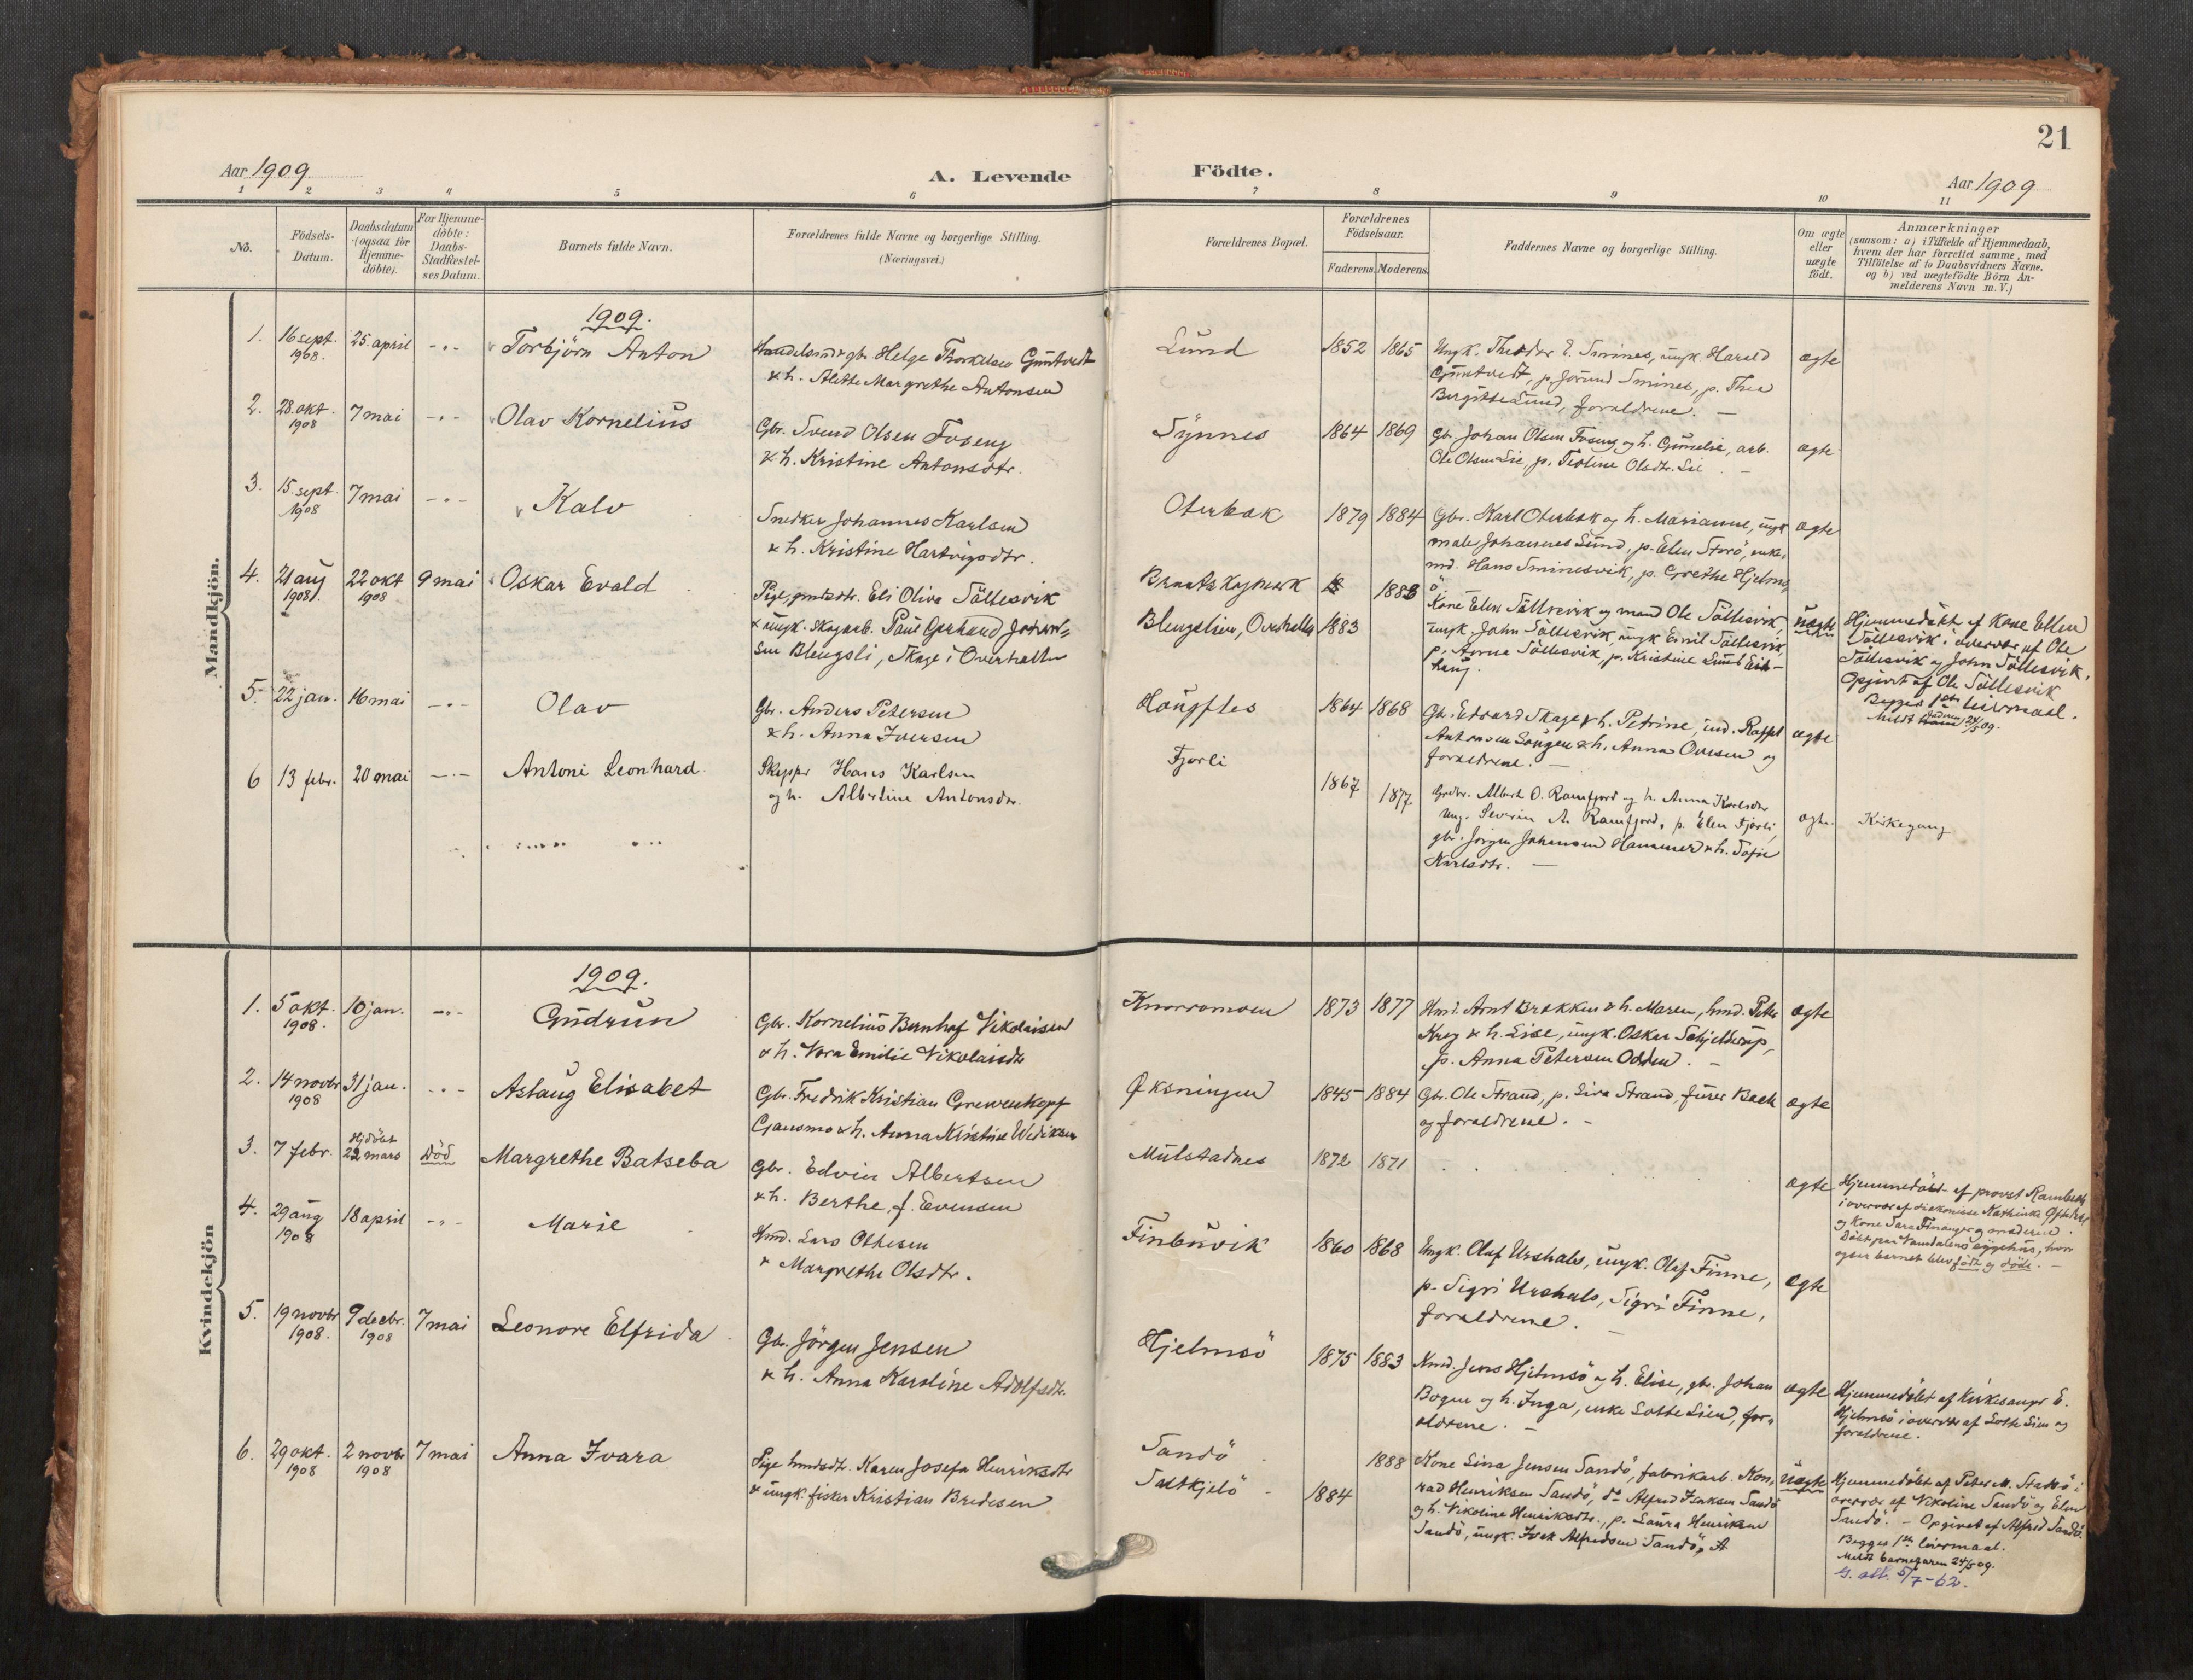 21
Aar 1909
A. Levende Födte.
Aar 1909
1 2 3 4 5 6 7 8 9 10 11
No.
Födsels-Datum.
Daabsdatum (ogsaa for Hjemme-döbte).
For Hjemme-döbte: Daabs-Stadfæstel-ses Datum.
Barnets fulde Navn.
Forældrenes fulde Navne og borgerlige Stilling.
(Næringsvei.)
Forældrenes Bopæl.
Forældrenes Födselsaar.
Faderens. Moderens.
Faddernes Navne og borgerlige Stilling.
Om ægte eller uægte födt.
Anmærkninger
(saasom: a) i Tilfælde af Hjemmedaab,
hvem der har forrettet samme, med
Tilföielse af to Daabsvidners Navne,
og b) ved uægtefödte Börn An-
melderens Navn m. V.)
Mandkjön.
1909.
1. 16 sept. 1908. 25. april -"- Torbjörn Anton
Helge Thorkelsen Grüntvedt
& h. Alethe Margrethe Antonsen
Lund 1852 1865
Ungk. Theodor E. Smines, ungk. Harald
Grüntvedt, p. Jörund Smines, p. Thea
Bergitte Lund, forældrene. —
ægte
2. 28. okt. 1908 7 mai -"- Olav Kornelius
Gbr. Svend Olsen Foseng
& h. Kristine Antonsdtr.
Synnes 1864 1869
Gbr. Johan Olsen Foseng og h. arb.
Ole Olsen Lie, p. Olsdtr. Lie —
ægte
3. 15. sept. 1908 7 mai -"- Kalv
Snedker Johannes Karlsen
& h. Kristine Hartvigsdtr.
Oterbæk 1879 1884
Gbr. Karl Oterbæk og h. Marianne, ungk
maler Johannes Lund, p. Elen Storö, enke-
md. Hans Sminesvik, p. Grethe Hjelms-
ö
ægte
4. 21 aug 1908. 22 okt 1908 9 mai Oskar Evald
Pige, gmdsdtr. Eli Oliva Söllesvik
& ungk. skogarb. Paul Gerhard
sen Blengsli, Skage i Overhalla
1883
Blengslien, Overhalla 1883
Kone Elen Söllesvik og mand Ole Söllesvik,
ungk. John Söllesvik, ungk Emil Söllesvik,
p. Anna Söllesvik, p. Kristine
haug.
uægte
Hjemmedöbt af Kone Ellen
Söllesvik i overvær af Ole
Söllesvik og John Söllesvik.
Opgivet af Ole Söllesvik
Begges 1ste leiermaal.
Meldt faderen 24/5 09.
5. 22 jan. 16 mai -"- Olav
Gbr. Anders Petersen
& h. Anna Iversen
Haugfles 1864 1868
Gbr. Edvard Skage & h. Petrine, ind.
Antonsen & h. Anna Ovesen og
forældrene. —
ægte
6 13 febr. 20 mai -"- Antoni Leonhard.
Skipper Hans Karlsen
og h. Albertine Antonsdtr.
Fjorli 1867 1877
Gbr. Albert O. Ramfjord og h. Anna Karlsdtr
Ung. Severin A. Ramfjord, p. Elen Fjorli,
gbr. Jörgen Johansen Hammer & h. Sofie
Karlsdtr. —
ægte. Kirkegang
Kvindekjön
1909.
1. 5 okt. 1908. 10 jan. -"- Gudrun
Gbr. Kornelius Bernhof Nikolaisen
& h. Nora Emilie Nikolaisdtr
Knarromoen 1873 1877
Hmd. Arnt Brækken & h. Maren, hmd. Peter
Kreg & h. Lise, ungk. Oskar Schjelderup,
p. Anna Petersen Odden. —
ægte
2. 14 novbr 1908 31 jan. -"- Aslaug Elisabet
Gbr. Fredrik Kristian Grewenkopf
& h. Anna Kristine
Øksningen 1845 1884
Gbr. Ole Strand, p. Liva Strand, Bach
og forældrene. —
ægte
3. 7 febr. Hjdöbt 22 mars Död Margrethe Batseba
Gbr. Edvin Albertsen
& h. Berthe, f. Evensen
Mulstadnes 1872 1871
ægte
Hjemmedöbt af provst
i overvær af diakonisse Kathinka
og Kone Sara Finanger og moderen.
Döbt paa Namdalens sygehus, hvor
ogsaa barnet blev födt og döde. —
4. 29 aug 1908 18 april -"- Marie
Hmd. Lars Othesen
& Margrethe Olsdtr.
Finbuvik 1860 1868
Ungk. Olaf Urshals, ungk. Olaf Finne,
p. Sigri Urshals, Sigri Finne,
forældrene. —
ægte
5. 19 novbr 1908. 9 decbr. 1908 7 mai Leonore Elfrida
Gbr. Jörgen Jensen
& h. Anna Karoline Adolfsdtr.
Hjelmsö 1875 1883
Kmd. Jens Hjelmsö og h. Elise, gbr. Johan
Bogen og h. Inga, enke Lotte Lien, for-
ældrene. —
ægte
Hjemmedöbt af Kirkesanger E.
Hjelmsö i overvær af Lotte Lien og
forældrene.
6. 29 okt. 1908 2 novbr 1908 7 mai Anna Ivara
Pige hmdsdtr. Karen Josefa Henriksdtr
& ungk. fisker Kristian Bredesen
Sandö 1888
Saltkjelö 1884
Kone Lina Jensen Sandö, fabrikarb. Kon-
rad Henriksen Sandö, do Alfred Isaksen Sandö
og h. Nikoline Henriksdtr., p. Laura Henriksen
Sandö, ungk. Isak Alfredsen Sandö,
uægte
Hjemmedöbt af Peter M. i
overvær af Nikoline Sandö og Elen
Sandö. — Opgivet af Alfred Sandö.
Begges 1ste leiermaal.
Meldt barnefaren 24/5 09.
5/7-62.